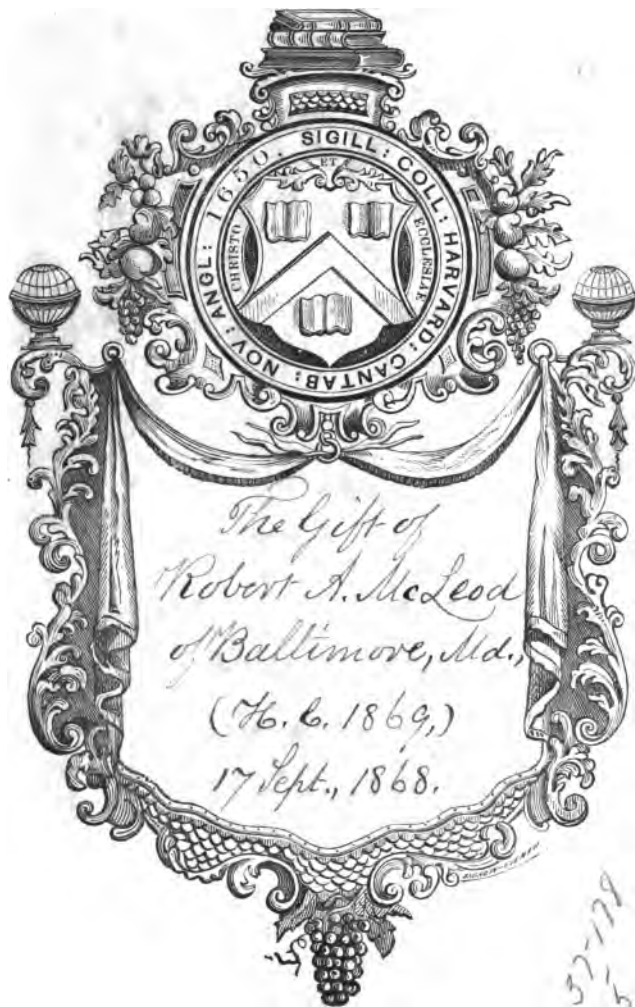 SIGILL: COLL: HARVARD: CANTAB: NOV: ANGL: 1650.
ET
CHRISTO
ECCLESIAE
The Gift of
Robert A. McLeod
of Baltimore, Md.,
(H. C. 1869,)
17 Sept., 1868.
37-178